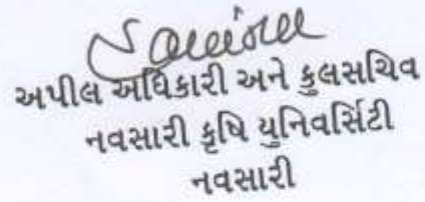 અપીલ અધિકારી અને કુલસચિવ
નવસારી કૃષિ યુનિવર્સિટી
નવસારી